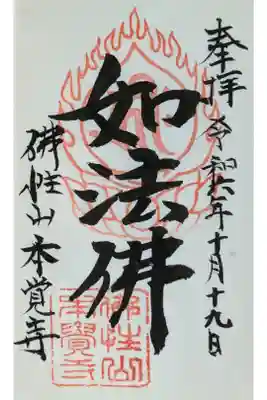 奉拝 令和六年十月十九日
如法佛
佛性山本覚寺
佛性山
本覺寺